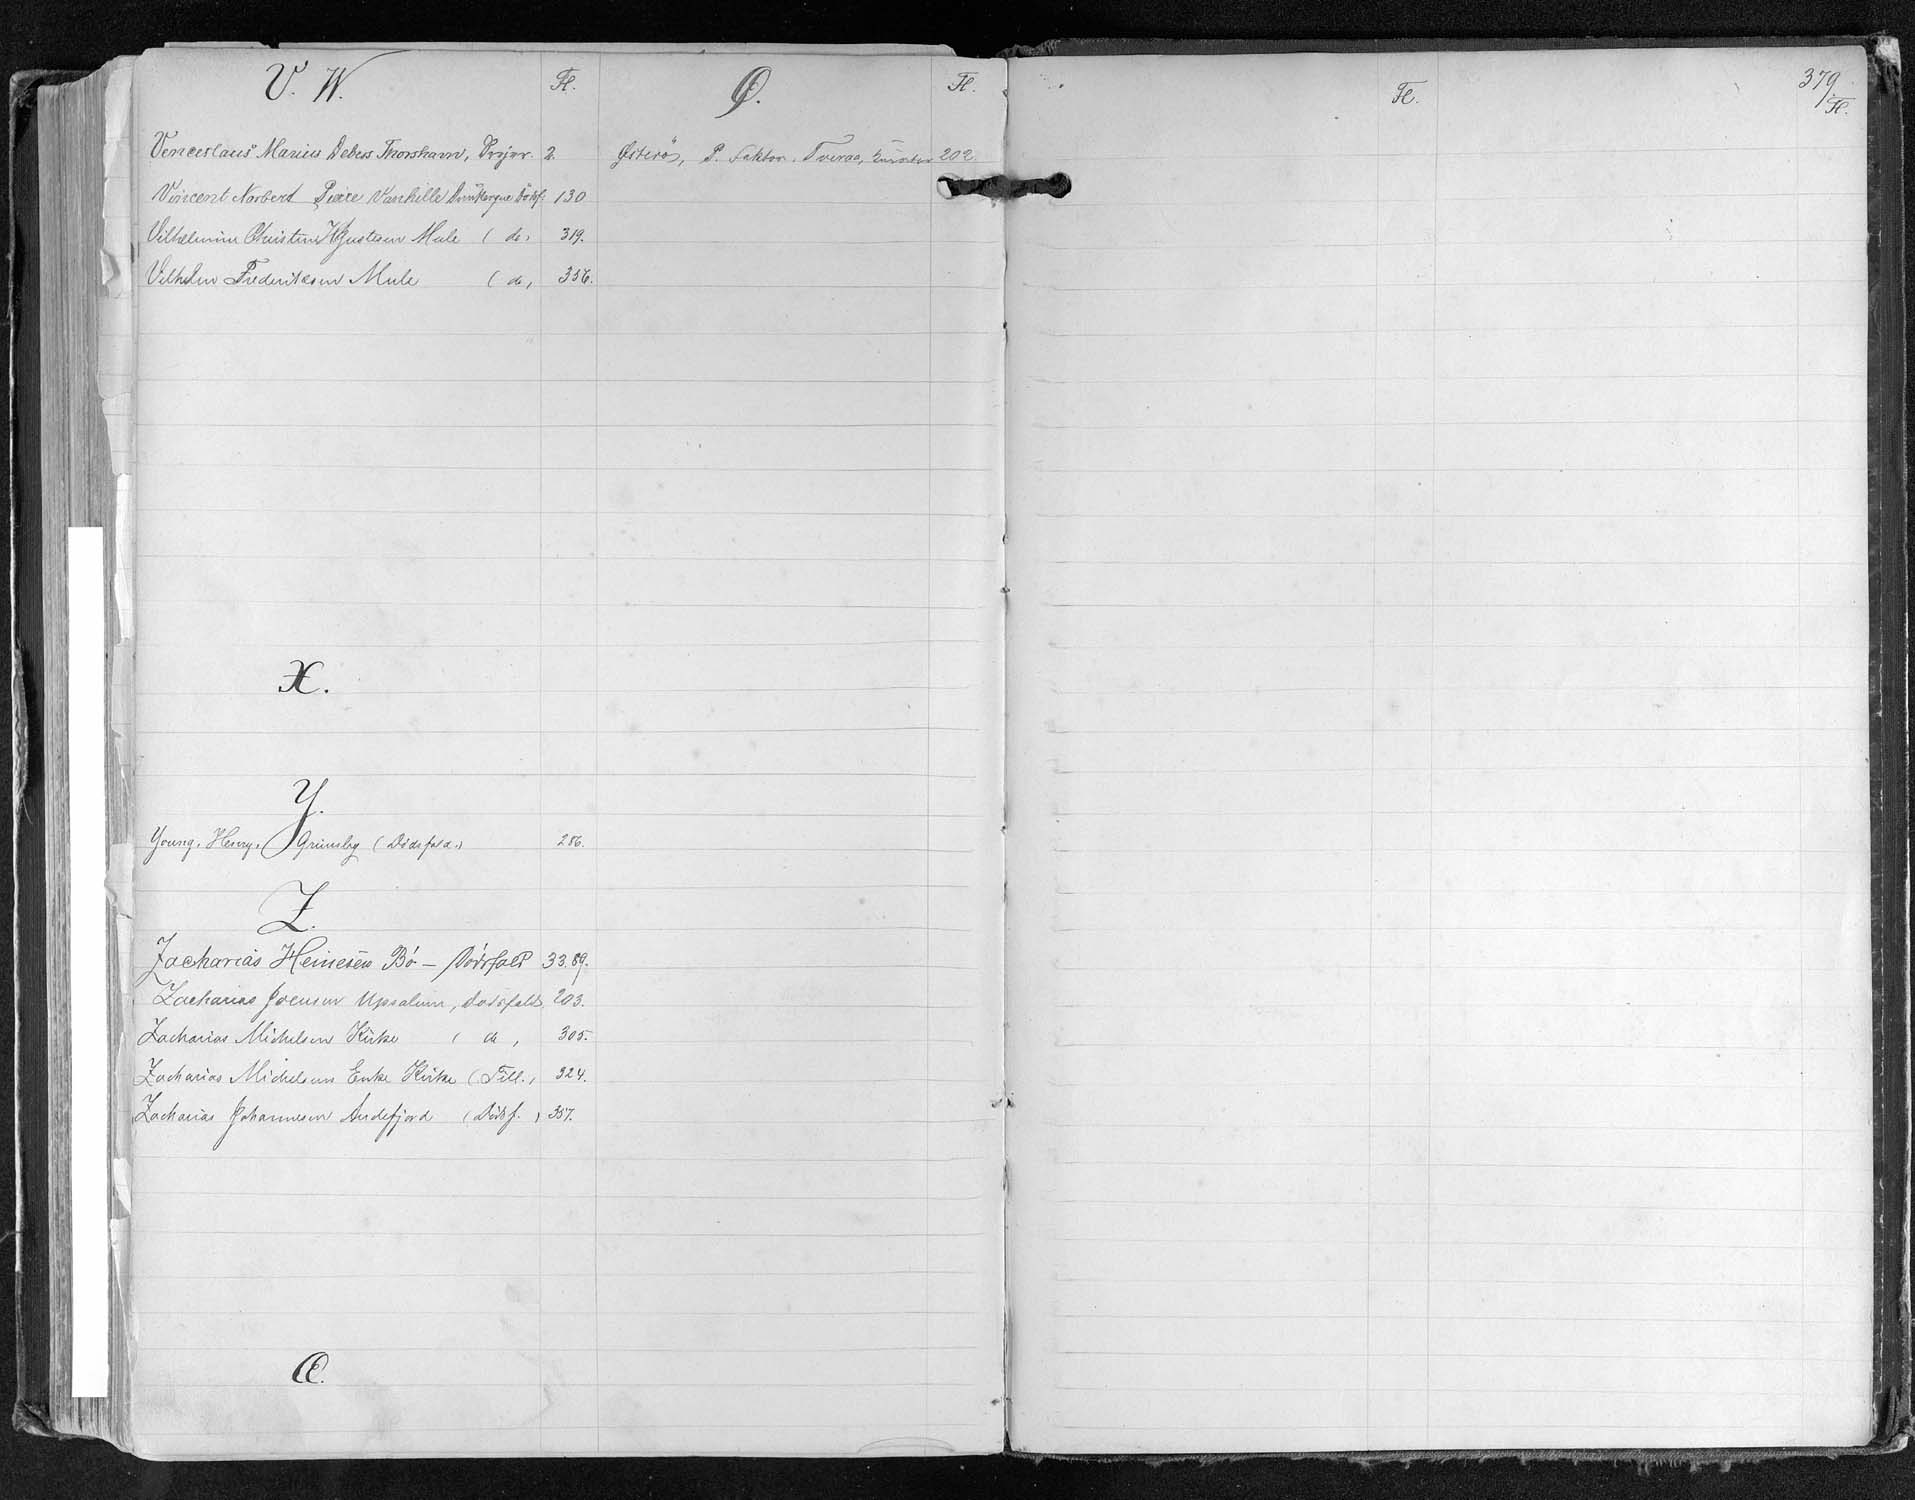 V. W.
Fl.
Venceslaus Marius Debess Thorshavn, 2.
Vincent Norbert Pierre Vanhille Dunkerque Dödsf. 130
Vilhelmine Christine Mule ( do, 319.
Vilhelm Frederiksen Mule ( do, 356.
X.
Y.
Young, Henry, Grimsby (Dödsfald.) 286.
Z.
Zacharias Heinesen Bö — Dödsfald 33.89.
Zacharias Joensen Upsalum, Dödsfald, 203.
Zacharias Michelsen Kirke ( do, 305.
Zacharias Michelsen Enke Kirke (Till.) 324.
Zacharias Johannesen Andefjord (Dödsf.) 357.
Æ.
Ø.
Fl.
Østerö, P. Faktor, Tveraa, 202.
Fl.
379.
Fl.